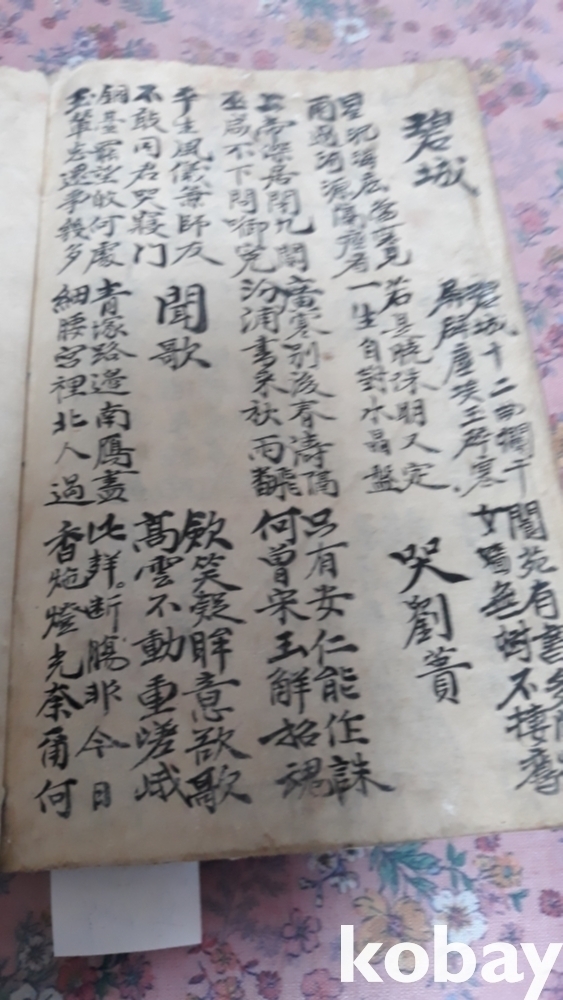 碧城
碧城十二曲欄干
犀辟塵埃玉辟寒
閬苑有書多附
女無樹不捿鸞
星沉海底當窓見
雨過河源隔座看
若是曉珠明又定
一生自對水晶盤
哭劉蕡
上帝深居閉九閽
巫咸不下問啣冤
廣寒別後春濤隔
浦書來秋雨翻
只有安仁能作誄
何曾宋玉解招魂
平生風儀兼師友
不敢同君哭寢門
聞歌
欽笑疑眸意欲歌
高雲不動重嵯峨
銅臺罷望皈何處
玉輦忘還事幾多
青塚路邊南鴈盡
細腰宮裡北人過
此聲斷膓非今日
香灺燈光奈爾何
kobay